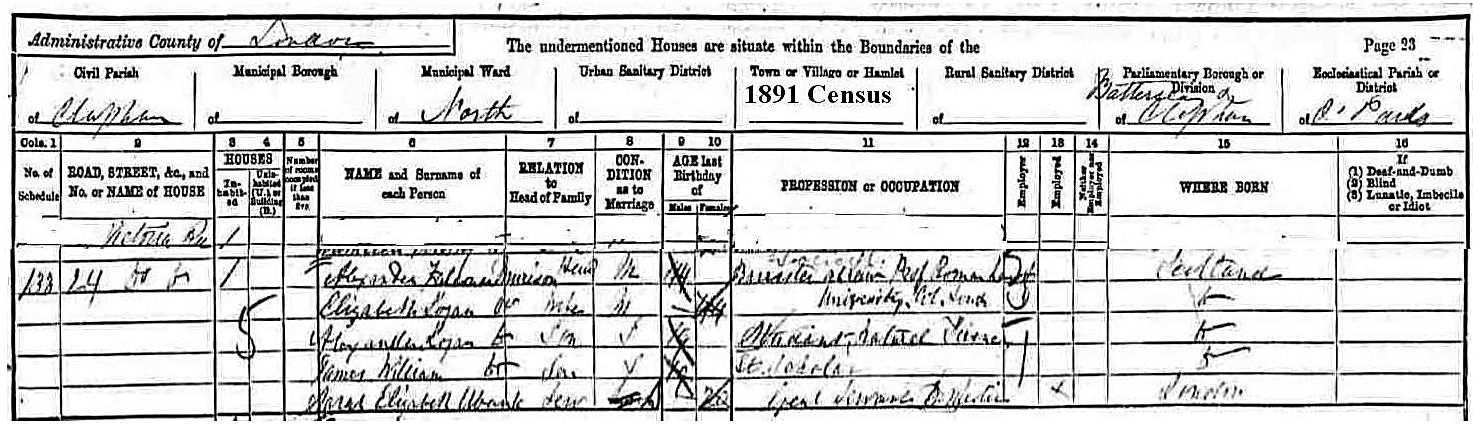 Administrative County of London
The undermentioned Houses are situate within the Boundaries of the
Page 23
Civil Parish
Municipal Borough
Municipal Ward
Urban Sanitary District
Town or Village or Hamlet
Rural Sanitary District
Parliamentary Borough or Division
Ecclesiastical Parish or District
of Clapham
of
of North
of
1891 Census
of
Battersea &
of Clapham
of
Cols. 1 2 3 4 5 6 7 8 9 10 11 12 13 14 15 16
No. of Schedule
ROAD, STREET, &c., and No. or NAME of HOUSE
HOUSES
Inhabited
Uninhabited (U.) or Building (B.)
Number of rooms occupied if less than five
NAME and Surname of each Person
RELATION to Head of Family
CONDITION as to Marriage
AGE last Birthday of
Males
Females
PROFESSION or OCCUPATION
Employer
Employed
Neither Employer nor Employed
WHERE BORN
If
(1) Deaf-and-Dumb
(2) Blind
(3) Lunatic, Imbecile or Idiot
Victoria 1
133 24 do do 1 Alexander Murison Head M Barrister Prof Roman Scotland
Elizabeth Logan do Wife M 44 University Col. Lond do
5 Alexander Logan do Son S Student, Natural Science do
James William do Son S Scholar do
Sarah Elizabeth Serv Genl Servant Domestic x London